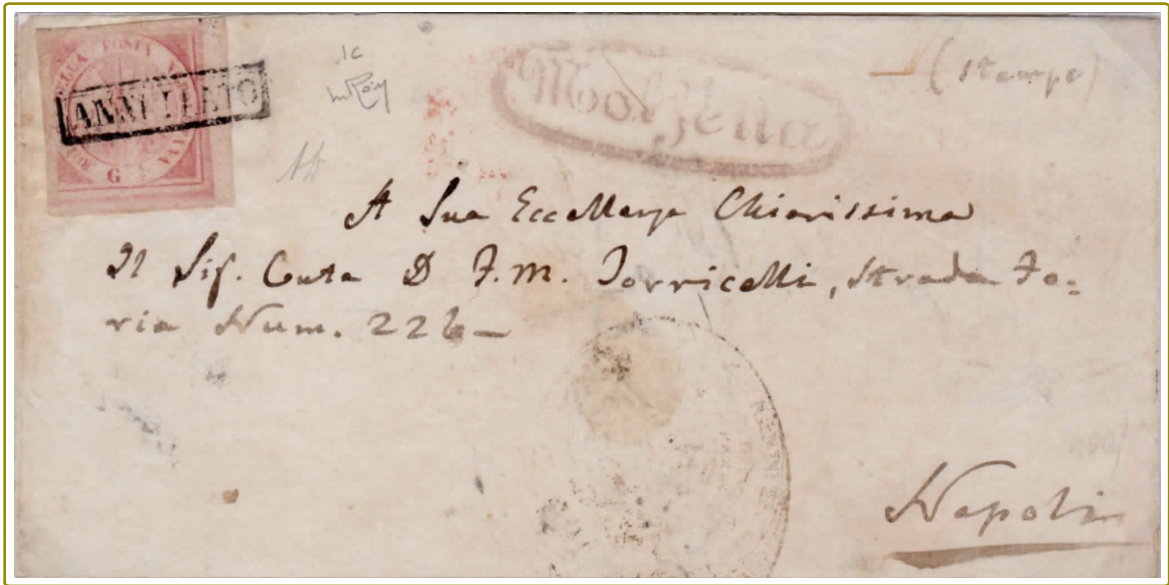 BOLLO DELLA POSTA NAPOLETANA
G
ANNULLATO
Molfetta
(stampe)
A Sua Eccellenza Chiarissima
Il Sig. D F. M. Torricelli, Strada Fo=
ria Num. 226
Napoli